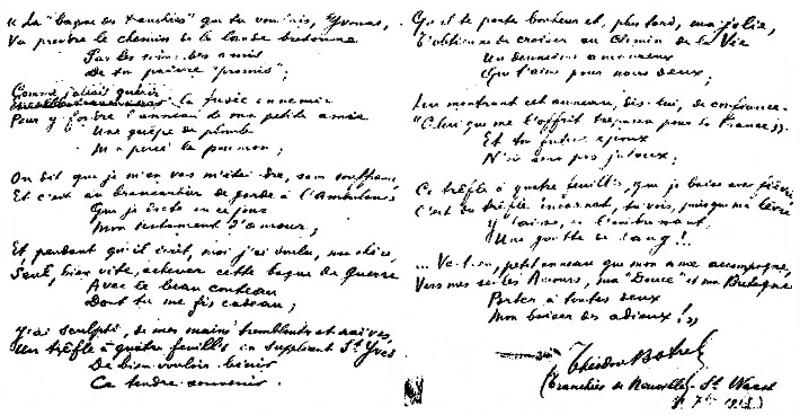 « La "bague des tranchées" que tu voulais, Yvonne,
Va prendre le chemin de la lande bretonne
Par les soins des amis
De ton pauvre "promis" ;
Comme j'allais quérir
la fusée ennemie
Pour y fondre l'anneau de ma petite amie
Une guêpe de plomb
M'a percé le poumon ;
On dit que je m'en vais m'éteindre, sans souffrance,
Et c'est au brancardier de garde à l'Ambulance
Que je dicte en ce jour
Mon testament d'amour ;
Et pendant qu'il écrit, moi j'ai voulu, ma chère,
Seul, bien vite, achever cette bague de guerre
Avec le beau couteau
Dont tu me fis cadeau ;
J'ai sculpté, de mes mains tremblantes et naïves,
Un trèfle à quatre feuilles en suppliant St Yves
De bien vouloir bénir
Ce tendre souvenir.
Qu'il te porte bonheur et, plus tard, ma jolie,
T'obtienne de croiser au chemin de la Vie
Un deuxième amoureux
Qui t'aime pour nous deux ;
Lui montrant cet anneau, dis-lui, de confiance :
"Celui qui me l'offrit trépassa pour la France »
Et ton futur époux
N'en sera pas jaloux ;
Ce trèfle à quatre feuilles, que je baise avec fièvre
C'est du trèfle incarnat, tu vois, puisque ma lèvre
Y laisse, en l'embrumant
Une goutte de sang !..
... Va-t-en, petit anneau que mon âme accompagne,
Vers mes seules Amours, ma "Douce" et ma Bretagne
Porter à toutes deux
Mon baiser des adieux ! »
Théodore Botrel
(Tranchées de Neuville-St Vaast
1915)